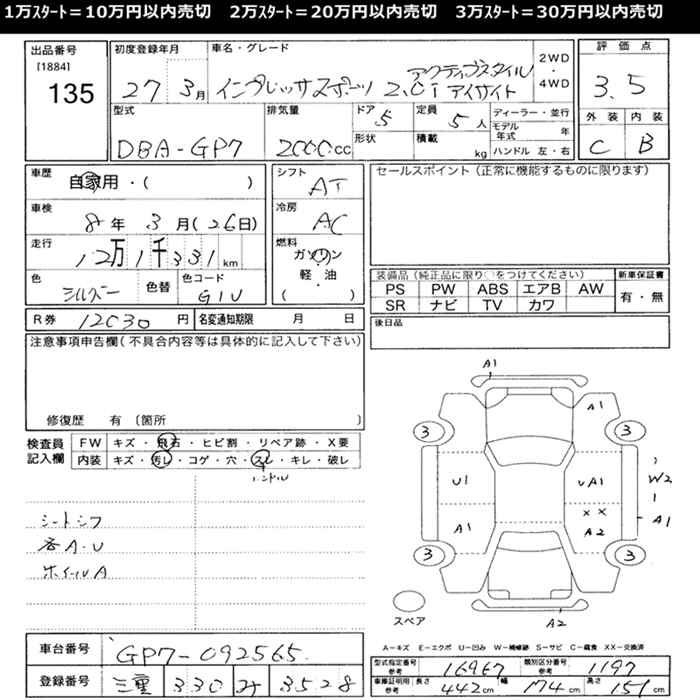 1万ｽﾀｰﾄ＝10万円以内売切　2万ｽﾀｰﾄ＝20万円以内売切　3万ｽﾀｰﾄ＝30万円以内売切
出品番号
[1884]
135
初度登録年月
27 3月
車名・グレード
インプレッサスポーツ 2.0i アクティブスタイル アイサイト
2WD
・
4WD
評価点
3.5
外装 内装
C B
型式
DBA-GP7
排気量
2000.cc
ドア 5
形状
定員 5人
積載 kg
ディーラー・並行
モデル年式 年
ハンドル 左・右
車歴
自家用・( )
車検
8年 3月(26日)
走行
12万1千331 km
色
シルバー
色替
色コード
G1U
シフト
AT
冷房
AC
燃料
ガソリン
軽・油
( )
セールスポイント（正常に機能するものに限ります）
装備品（純正品に限り○をつけてください）
新車保証書
PS PW ABS エアB AW
SR ナビ TV カワ
有・無
R券 12030 円
名変通知期限 月 日
後日品
注意事項申告欄(不具合内容等は具体的に記入して下さい)
修復歴 有 〔箇所 〕
検査員
記入欄
FW キズ・飛石・ヒビ割・リペア跡・X要
内装 キズ・汚レ・コゲ・穴・スレ・キレ・破レ
ハンドル
シートシワ
各A・U
ホイールA
A1
A1
3 3
U1
A1
W2
A1
××
A2
A1
3 3
スペア
A2
車台番号
GP7-092565
登録番号
三重 330 み 3528
A－キズ E－エクボ U－凹み W－補修跡 S－サビ C－腐食 XX－交換済
型式指定番号
参考
16967
類別区分番号
参考
1197
車庫証明用 長さ
参考
442cm
幅 174cm
高さ 151cm